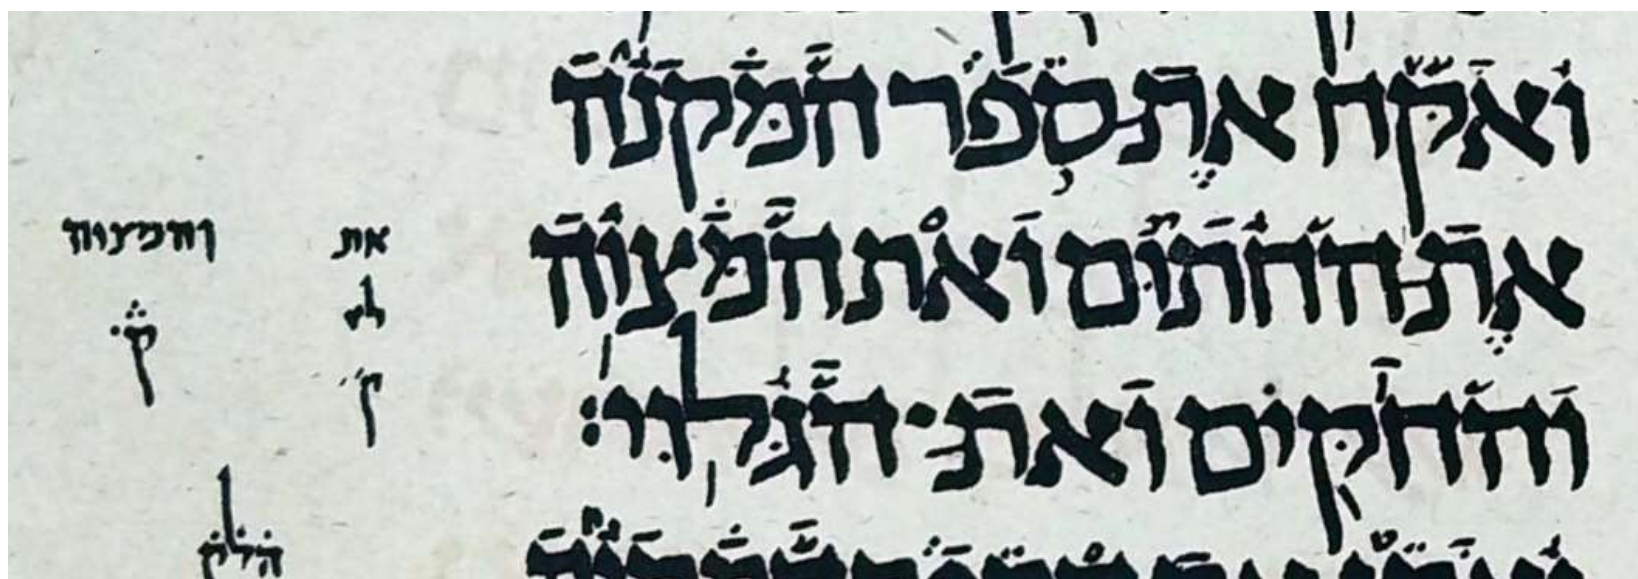 ואקח את־ספר המקנה
את־החתום ואת המצוה
והחקים ואת־הגלוי׃
את
והמצוה
ק
ק